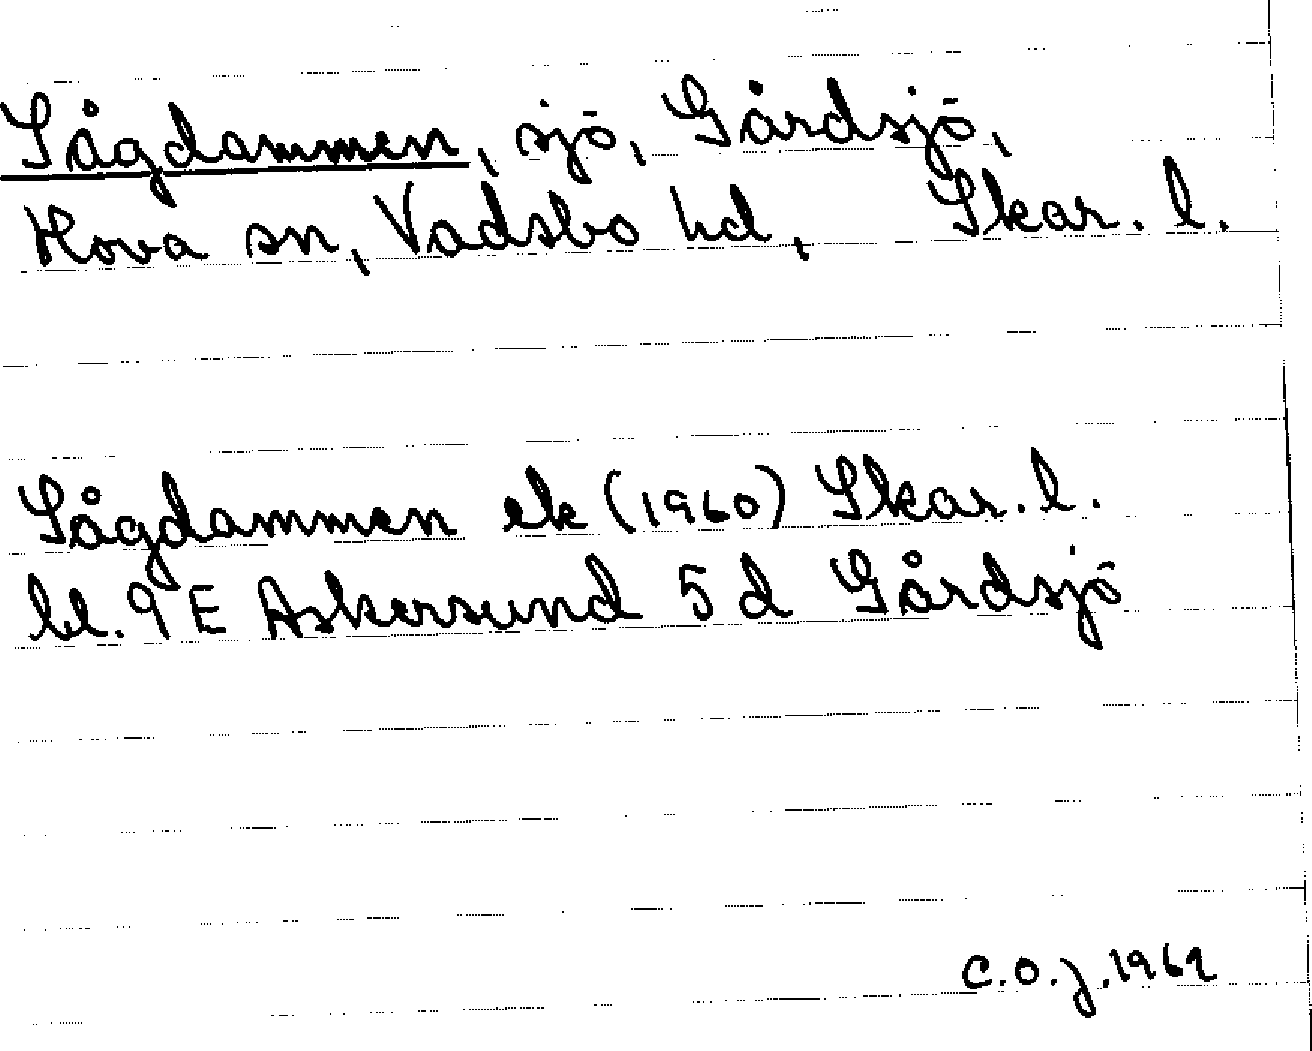 Sågdammen, sjö, Gårdsjö,
Hova sn, Vadsbo hd, Skar. l.
Sågdammen ek (1960) Skar. l.
bl. 9 E Askersund 5 d Gårdsjö
C.O.J. 1962